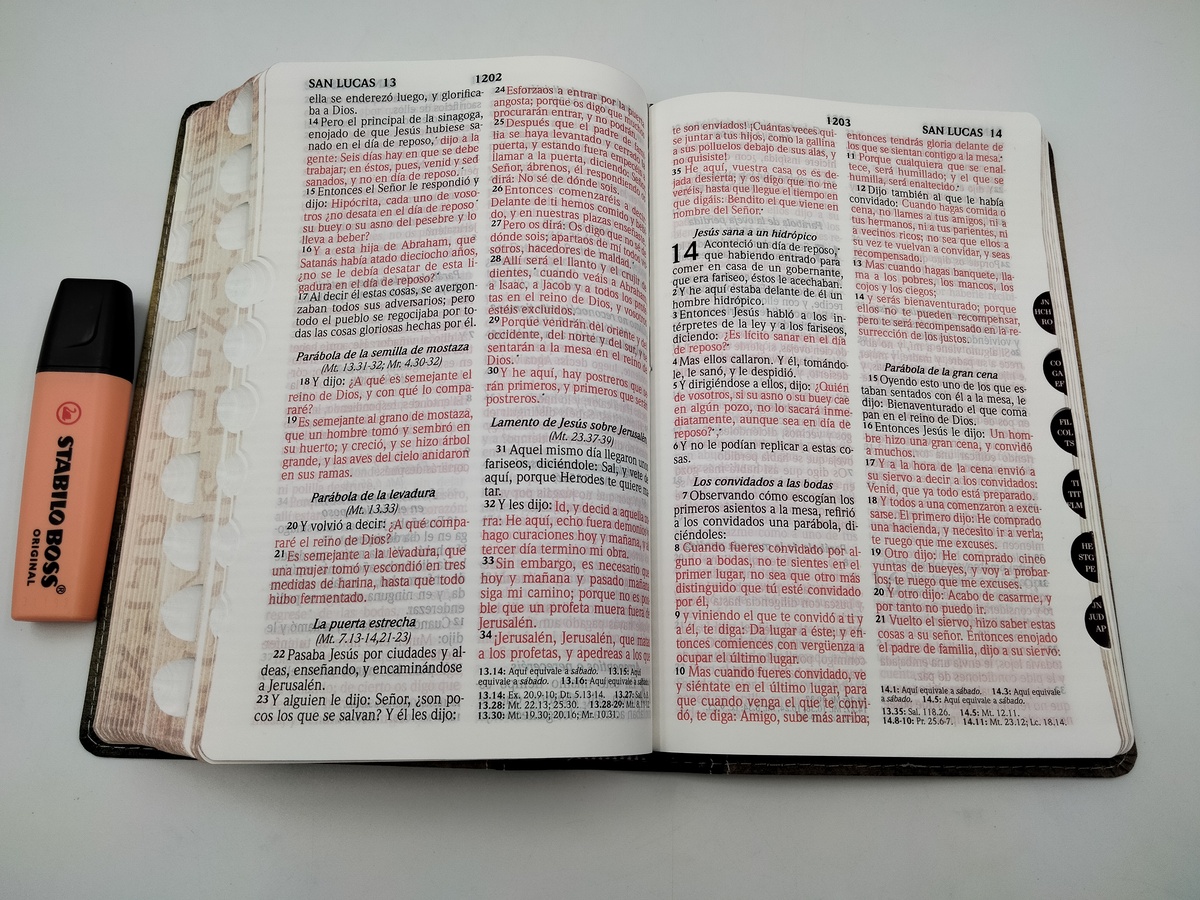 SAN LUCAS 13
1202
ella se enderezó luego, y glorifica-
ba a Dios.
14 Pero el principal de la sinagoga,
enojado de que Jesús hubiese sa-
nado en el día de reposo,* dijo a la
gente: Seis días hay en que se debe
trabajar; en éstos, pues, venid y sed
sanados, y no en día de reposo.*
15 Entonces el Señor le respondió y
dijo: Hipócrita, cada uno de voso-
tros ¿no desata en el día de reposo*
su buey o su asno del pesebre y lo
lleva a beber?
16 Y a esta hija de Abraham, que
Satanás había atado dieciocho años,
¿no se le debía desatar de esta li-
gadura en el día de reposo?*
17 Al decir él estas cosas, se avergon-
zaban todos sus adversarios; pero
todo el pueblo se regocijaba por to-
das las cosas gloriosas hechas por él.
Parábola de la semilla de mostaza
(Mt. 13.31-32; Mr. 4.30-32)
18 Y dijo: ¿A qué es semejante el
reino de Dios, y con qué lo compa-
raré?
19 Es semejante al grano de mostaza,
que un hombre tomó y sembró en
su huerto; y creció, y se hizo árbol
grande, y las aves del cielo anidaron
en sus ramas.
Parábola de la levadura
(Mt. 13.33)
20 Y volvió a decir: ¿A qué compa-
raré el reino de Dios?
21 Es semejante a la levadura, que
una mujer tomó y escondió en tres
medidas de harina, hasta que todo
hubo fermentado.
La puerta estrecha
(Mt. 7.13-14,21-23)
22 Pasaba Jesús por ciudades y al-
deas, enseñando, y encaminándose
a Jerusalén.
23 Y alguien le dijo: Señor, ¿son po-
cos los que se salvan? Y él les dijo:
24 Esforzaos a entrar por la puerta
angosta; porque os digo que muchos
procurarán entrar, y no podrán.
25 Después que el padre de familia
se haya levantado y cerrado la
puerta, y estando fuera empecéis a
llamar a la puerta, diciendo: Señor,
Señor, ábrenos, él respondiendo os
dirá: No sé de dónde sois.
26 Entonces comenzaréis a decir:
Delante de ti hemos comido y bebi-
do, y en nuestras plazas enseñaste.
27 Pero os dirá: Os digo que no sé de
dónde sois; apartaos de mí todos vo-
sotros, hacedores de maldad.*
28 Allí será el llanto y el crujir de
dientes,* cuando veáis a Abraham,
a Isaac, a Jacob y a todos los profe-
tas en el reino de Dios, y vosotros
estéis excluidos.
29 Porque vendrán del oriente y del
occidente, del norte y del sur, y se
sentarán a la mesa en el reino de
Dios.*
30 Y he aquí, hay postreros que se-
rán primeros, y primeros que serán
postreros.*
Lamento de Jesús sobre Jerusalén
(Mt. 23.37-39)
31 Aquel mismo día llegaron unos
fariseos, diciéndole: Sal, y vete de
aquí, porque Herodes te quiere ma-
tar.
32 Y les dijo: Id, y decid a aquella zo-
rra: He aquí, echo fuera demonios y
hago curaciones hoy y mañana, y al
tercer día termino mi obra.
33 Sin embargo, es necesario que
hoy y mañana y pasado mañana
siga mi camino; porque no es posi-
ble que un profeta muera fuera de
Jerusalén.
34 ¡Jerusalén, Jerusalén, que matas
a los profetas, y apedreas a los que
13.14: Aquí equivale a sábado. 13.15: Aquí
equivale a sábado. 13.16: Aquí equivale a sábado.
13.14: Ex. 20.9-10; Dt. 5.13-14. 13.27: Sal. 6.8.
13.28: Mt. 22.13; 25.30. 13.28-29: Mt. 8.11-12.
13.30: Mt. 19.30; 20.16; Mr. 10.31.
1203
SAN LUCAS 14
te son enviados! ¡Cuántas veces qui-
se juntar a tus hijos, como la gallina
a sus polluelos debajo de sus alas, y
no quisiste!
35 He aquí, vuestra casa os es de-
jada desierta; y os digo que no me
veréis, hasta que llegue el tiempo en
que digáis: Bendito el que viene en
nombre del Señor.*
Jesús sana a un hidrópico
14 Aconteció un día de reposo,*
que habiendo entrado para
comer en casa de un gobernante,
que era fariseo, éstos le acechaban.
2 Y he aquí estaba delante de él un
hombre hidrópico.
3 Entonces Jesús habló a los in-
térpretes de la ley y a los fariseos,
diciendo: ¿Es lícito sanar en el día
de reposo?*
4 Mas ellos callaron. Y él, tomándo-
le, le sanó, y le despidió.
5 Y dirigiéndose a ellos, dijo: ¿Quién
de vosotros, si su asno o su buey cae
en algún pozo, no lo sacará inme-
diatamente, aunque sea en día de
reposo?*,*
6 Y no le podían replicar a estas co-
sas.
Los convidados a las bodas
7 Observando cómo escogían los
primeros asientos a la mesa, refirió
a los convidados una parábola, di-
ciéndoles:
8 Cuando fueres convidado por al-
guno a bodas, no te sientes en el
primer lugar, no sea que otro más
distinguido que tú esté convidado
por él,
9 y viniendo el que te convidó a ti y
a él, te diga: Da lugar a éste; y en-
tonces comiences con vergüenza a
ocupar el último lugar.
10 Mas cuando fueres convidado, ve
y siéntate en el último lugar, para
que cuando venga el que te convi-
dó, te diga: Amigo, sube más arriba;
entonces tendrás gloria delante de
los que se sientan contigo a la mesa.*
11 Porque cualquiera que se enal-
tece, será humillado; y el que se
humilla, será enaltecido.*
12 Dijo también al que le había
convidado: Cuando hagas comida o
cena, no llames a tus amigos, ni a
tus hermanos, ni a tus parientes, ni
a vecinos ricos; no sea que ellos a
su vez te vuelvan a convidar, y seas
recompensado.
13 Mas cuando hagas banquete, lla-
ma a los pobres, los mancos, los
cojos y los ciegos;
14 y serás bienaventurado; porque
ellos no te pueden recompensar,
pero te será recompensado en la re-
surrección de los justos.
Parábola de la gran cena
15 Oyendo esto uno de los que es-
taban sentados con él a la mesa, le
dijo: Bienaventurado el que coma
pan en el reino de Dios.
16 Entonces Jesús le dijo: Un hom-
bre hizo una gran cena, y convidó
a muchos.
17 Y a la hora de la cena envió a
su siervo a decir a los convidados:
Venid, que ya todo está preparado.
18 Y todos a una comenzaron a excu-
sarse. El primero dijo: He comprado
una hacienda, y necesito ir a verla;
te ruego que me excuses.
19 Otro dijo: He comprado cinco
yuntas de bueyes, y voy a probar-
los; te ruego que me excuses.
20 Y otro dijo: Acabo de casarme, y
por tanto no puedo ir.
21 Vuelto el siervo, hizo saber estas
cosas a su señor. Entonces enojado
el padre de familia, dijo a su siervo:
14.1: Aquí equivale a sábado. 14.3: Aquí equivale
a sábado. 14.5: Aquí equivale a sábado.
13.35: Sal. 118.26. 14.5: Mt. 12.11.
14.8-10: Pr. 25.6-7. 14.11: Mt. 23.12; Lc. 18.14.
JN
HCH
RO
CO
GA
EF
FIL
COL
TS
TI
TIT
FLM
HE
STG
PE
JN
JUD
AP
STABILO BOSS®
ORIGINAL